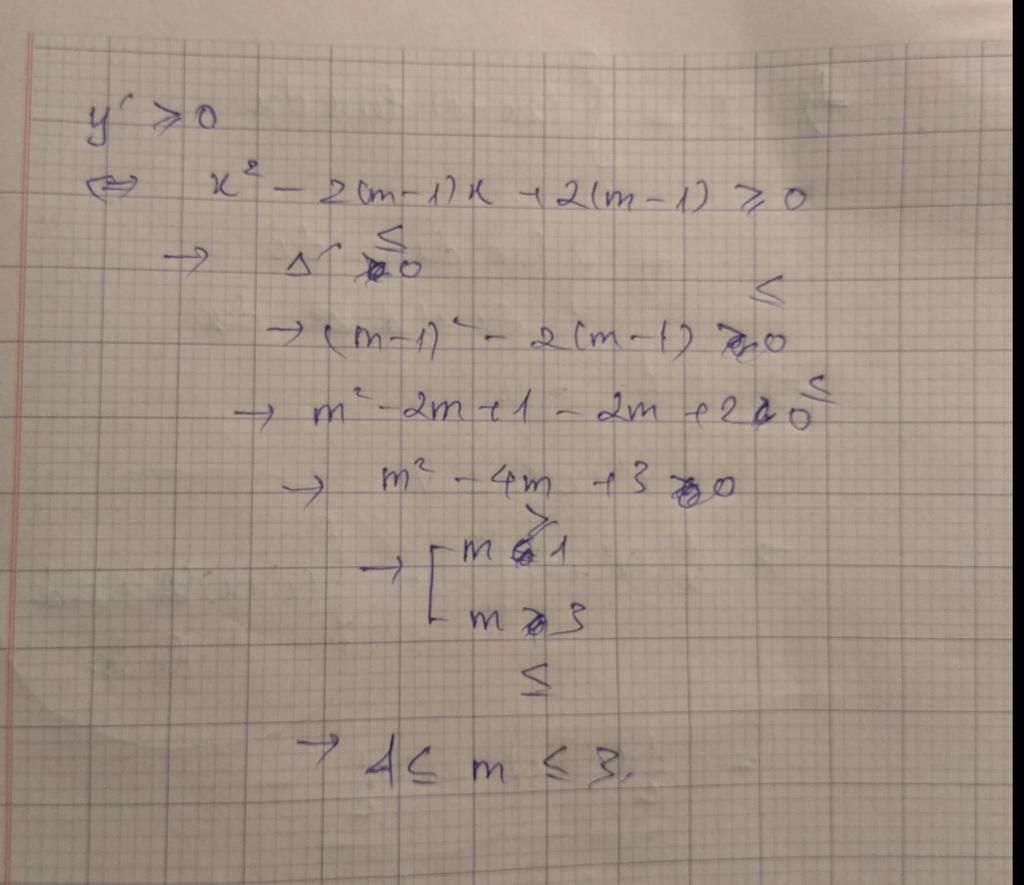 y' ≥ 0
⇔ x² - 2(m-1)x + 2(m-1) ≥ 0
→ Δ' ≤ 0
→ (m-1)² - 2(m-1) ≤ 0
→ m² - 2m + 1 - 2m + 2 ≤ 0
→ m² - 4m + 3 0
→ [ m ≥ 1
m ≤ 3
→ 1 ≤ m ≤ 3.